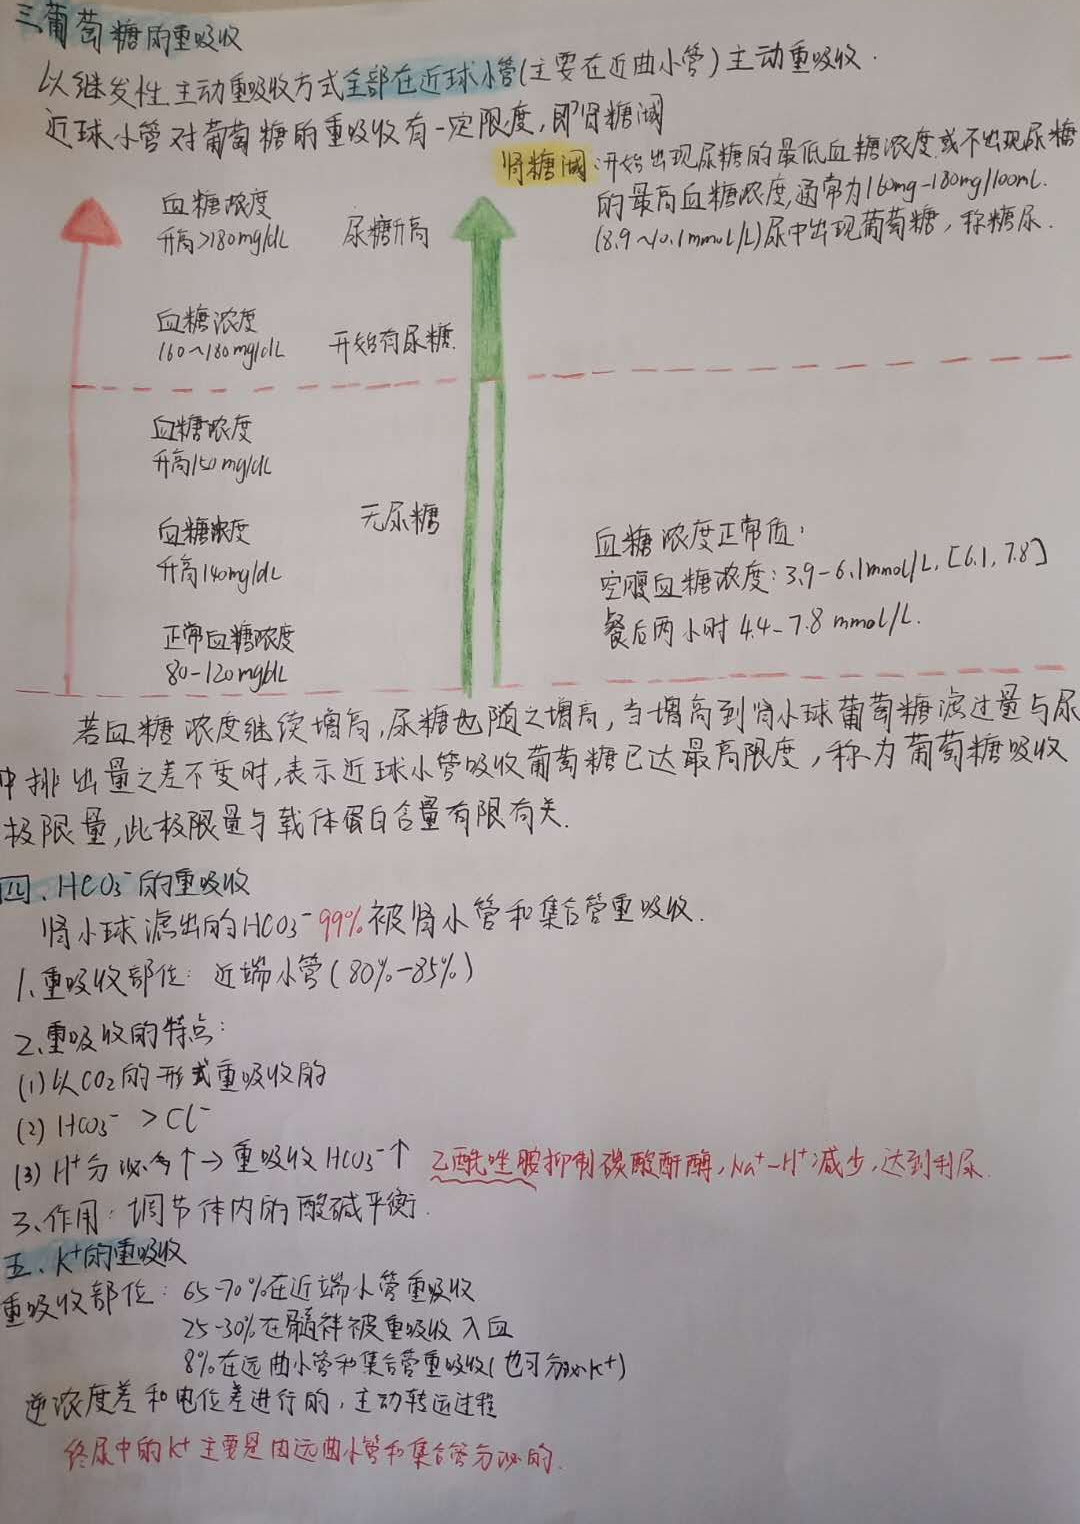 三葡萄糖的重吸收
以继发性主动重吸收方式全部在近球小管(主要在近曲小管)主动重吸收.
近球小管对葡萄糖的重吸收有一定限度,即肾糖阈
肾糖阈:开始出现尿糖的最低血糖浓度或不出现尿糖
的最高血糖浓度,通常为160mg-180mg/100mL.
(8.9~10.1mmoL/L)尿中出现葡萄糖,称糖尿.
血糖浓度
升高>180mg/dL
尿糖升高
血糖浓度
160~180mg/dL
开始有尿糖.
血糖浓度
升高150mg/dL
无尿糖
血糖浓度
升高140mg/dL
正常血糖浓度
80-120mg/dL
血糖浓度正常值:
空腹血糖浓度:3.9-6.1mmol/L.[6.1,7.8]
餐后两小时4.4-7.8mmol/L.
若血糖浓度继续增高,尿糖也随之增高,当增高到肾小球葡萄糖滤过量与尿
中排出量之差不变时,表示近球小管吸收葡萄糖已达最高限度,称为葡萄糖吸收
极限量,此极限量与载体蛋白含量有限有关.
四.HCO₃⁻的重吸收
肾小球滤出的HCO₃⁻99%被肾小管和集合管重吸收.
1.重吸收部位:近端小管(80%-85%)
2.重吸收的特点:
(1)以CO₂的形式重吸收的
(2)HCO₃⁻>Cl⁻
(3)H⁺分泌↑→重吸收HCO₃⁻↑ 乙酰唑胺抑制碳酸酐酶,Na⁺-H⁺减少,达到利尿.
3.作用:调节体内的酸碱平衡.
五.K⁺的重吸收
重吸收部位:65-70%在近端小管重吸收
25-30%在髓袢被重吸收入血
8%在远曲小管和集合管重吸收(也可分泌K⁺)
逆浓度差和电位差进行的,主动转运过程
终尿中的K⁺主要是由远曲小管和集合管分泌的.